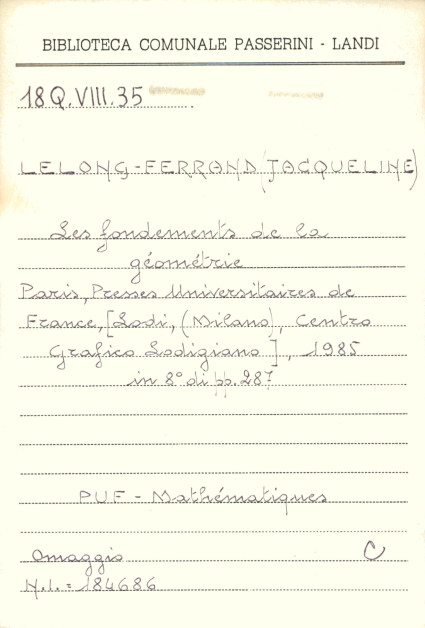 BIBLIOTECA COMUNALE PASSERINI - LANDI
18 Q.VIII.35
LELONG-FERRAND (JACQUELINE)
Les fondements de la
géométrie
Paris, Presses Universitaires de
France, [Lodi, (Milano), Centro
Grafico Lodigiano], 1985
in 8° di pp. 287
PUF - Mathématiques
Omaggio C
N.I. = 184686